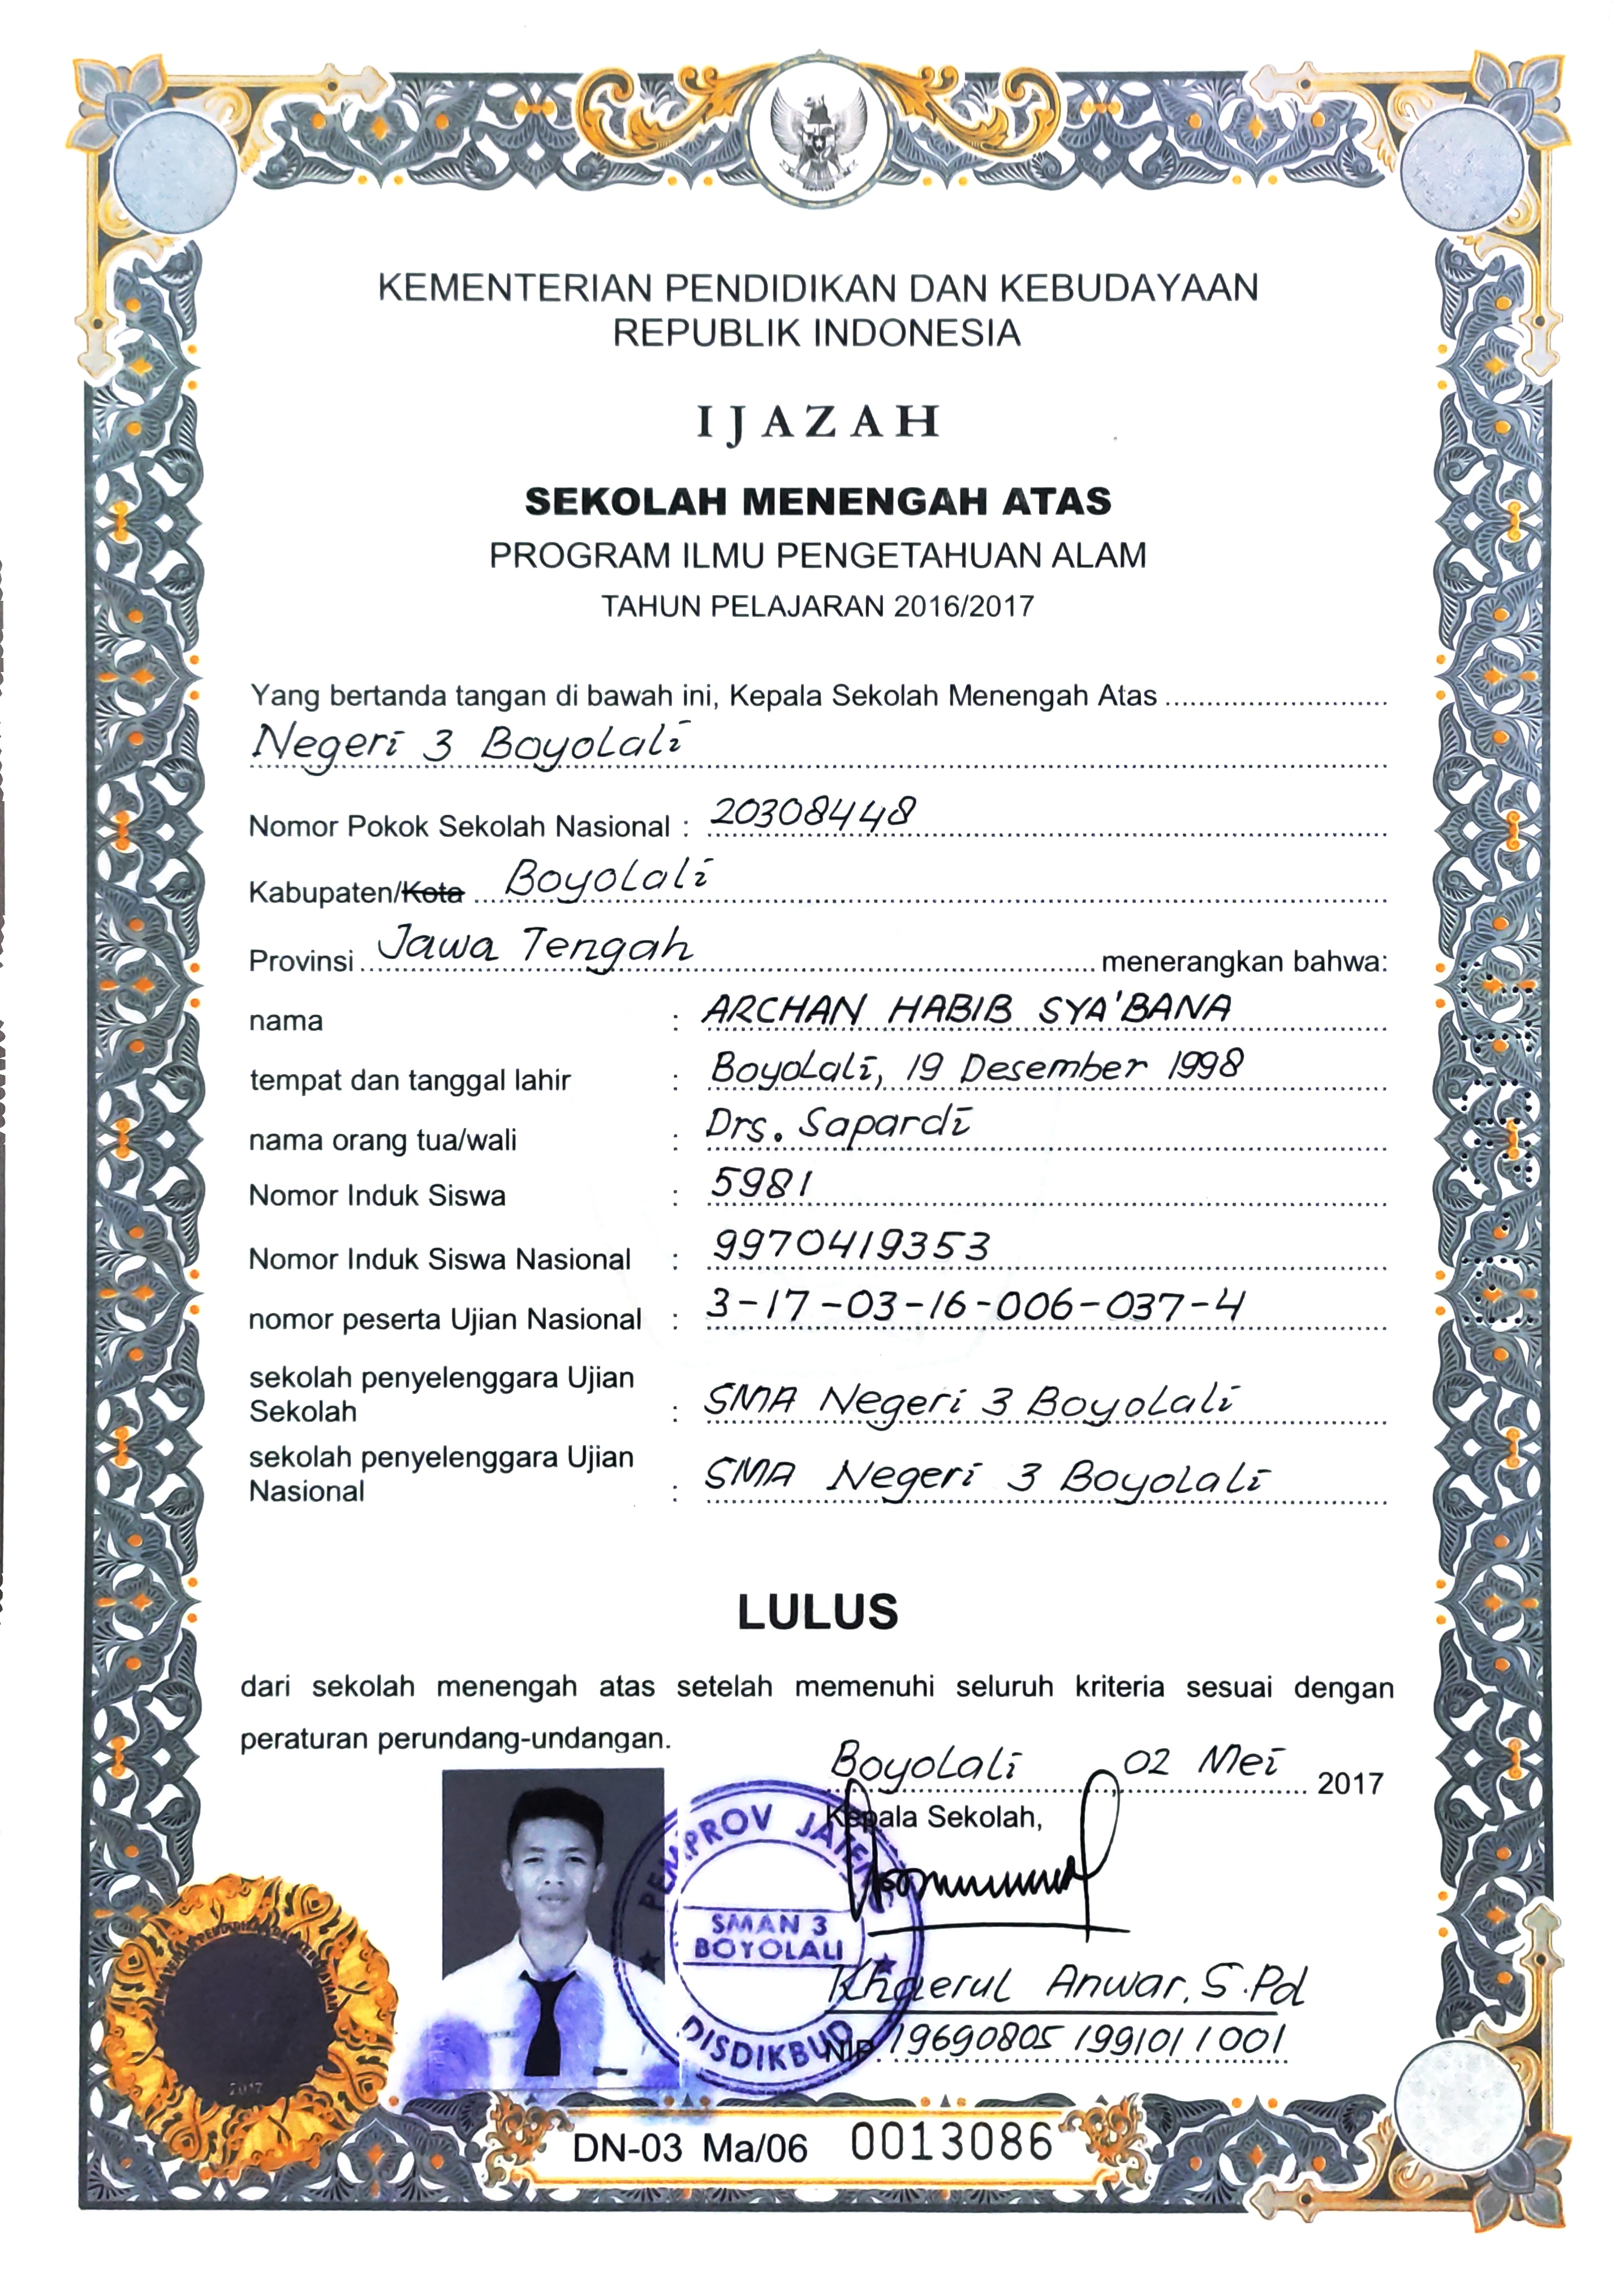 KEMENTERIAN PENDIDIKAN DAN KEBUDAYAAN
REPUBLIK INDONESIA
IJAZAH
SEKOLAH MENENGAH ATAS
PROGRAM ILMU PENGETAHUAN ALAM
TAHUN PELAJARAN 2016/2017
Yang bertanda tangan di bawah ini, Kepala Sekolah Menengah Atas
Negeri 3 Boyolali
Nomor Pokok Sekolah Nasional : 20308448
Kabupaten/Kota Boyolali
Provinsi Jawa Tengah menerangkan bahwa:
nama : ARCHAN HABIB SYA'BANA
tempat dan tanggal lahir : Boyolali, 19 Desember 1998
nama orang tua/wali : Drs. Sapardi
Nomor Induk Siswa : 5981
Nomor Induk Siswa Nasional : 9970419353
nomor peserta Ujian Nasional : 3-17-03-16-006-037-4
sekolah penyelenggara Ujian
Sekolah : SMA Negeri 3 Boyolali
sekolah penyelenggara Ujian
Nasional : SMA Negeri 3 Boyolali
LULUS
dari sekolah menengah atas setelah memenuhi seluruh kriteria sesuai dengan
peraturan perundang-undangan.
Boyolali, 02 Mei 2017
Kepala Sekolah,
PEMPROV JATENG
SMAN 3
BOYOLALI
DISDIKBUD
Khaerul Anwar, S.Pd
NIP. 19690805 199101 1 001
2017
DN-03 Ma/06 0013086